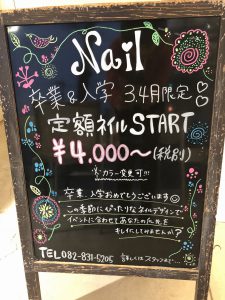 Nail
卒業&入学 3.4月限定♡
定額ネイルSTART
¥4,000~(税別)
カラー変更可!!!
卒業、入学おめでとうございます☺
この季節にぴったりなネイルデザインで
イベントに合わせてあなたの爪先を
キレイにしてみませんか?
TEL 082-831-5205 詳しくはスタッフまで…